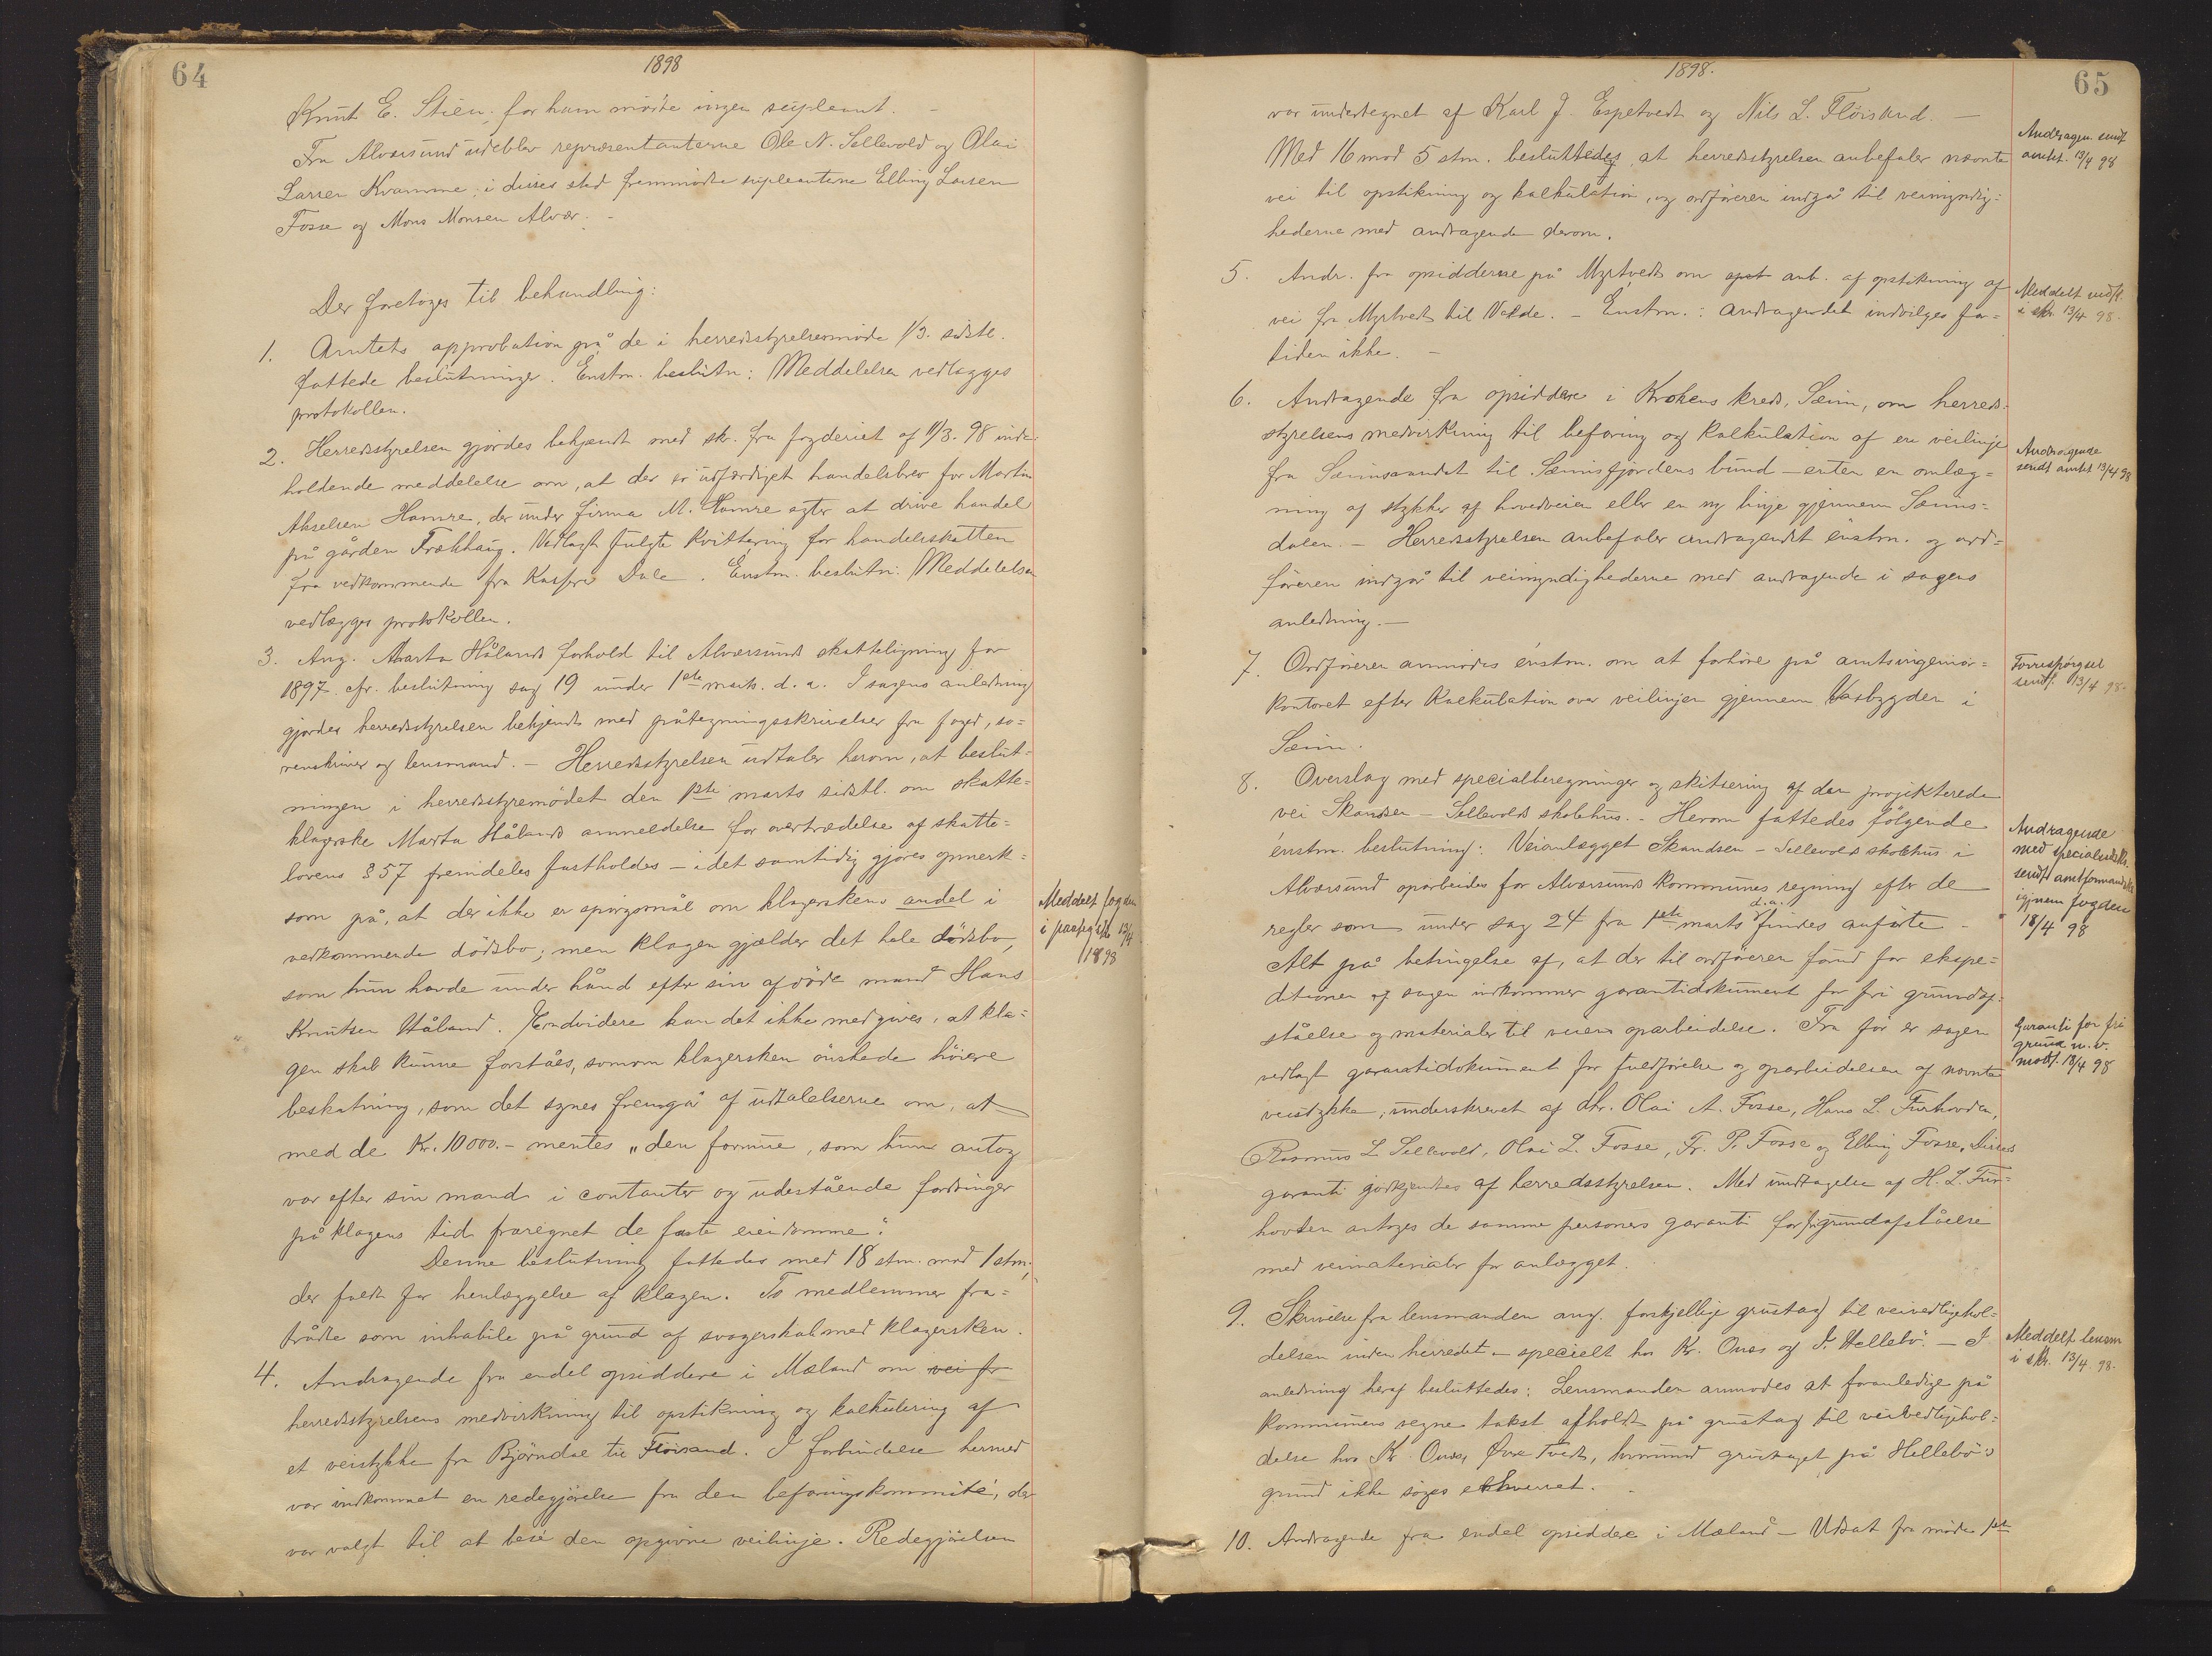 64
1898
Knut E. Stien; for ham mødte ingen supleant. –
Fra Alversund udeblev repræsentanterne Ole N. Sellevold og Olai
Larsen Kvamme; i disses sted fremmødte supleanterne Elling Larsen
Fosse og Mons Monsen Alver. –
Der foretoges til behandling:
1. Amtets approbation på de i herredsstyrelsesmøde 1/3. sidstl.
fattede beslutninger. Enstm. beslutn: Meddelelsen vedlægges
protokollen.
2. Herredsstyrelsen gjordes bekjendt med skr. fra fogderiet af 11/3. 98 inde-
holdende meddelelse om, at der er udfærdiget handelsbrev for Martin
Akselsen Hamre, der under firma M. Hamre agter at drive handel
på gården Frækhaug. Vedlagt fulgte kvittering for handelsskatten
fra vedkommende fra Kasper Dale. Enstm. beslutn: Meddelelsen
vedlægges protokollen.
3. Ang. Marta Hålands forhold til Alversunds skatteligning for
1897 cfr. beslutning sag 19 under 1ste marts d. a. I sagens anledning
gjordes herredsstyrelsen bekjendt med påtegningsskrivelser fra foged, so=
renskriver og lensmand. – Herredsstyrelsen udtaler herom, at beslut=
ningen i herredsstyremødet den 1ste marts sidstl. om skatte=
klagerske Marta Hålands anmeldelse for overtrædelse af skatte=
lovens § 57 fremdeles fastholdes – idet samtidig gjøres opmerk=
som på, at der ikke er spørgsmål om klagerskens andel i
vedkommende dødsbo; men klagen gjælder det hele dødsbo,
som hun havde under hånd efter sin afdøde mand Hans
Knutsen Håland. Endvidere kan det ikke medgives, at kla=
gen skal kunne forståes, somom klagersken ønskede høiere
beskatning, som det synes fremgå af udtalelserne om, at
med de Kr. 10000.– mentes „den formue, som hun antog
var efter sin mand i contanter og udestående fordringer
på klagens tid fraregnet de faste eiendomme."
Denne beslutning fattedes med 18 stm. mod 1 stm,
der faldt for henlæggelse af klagen. To medlemmer fra=
trådte som inhabile på grund af svogerskab med klagersken.
4. Andragende fra endel opsiddere i Mæland om vei fr
herredsstyrelsens medvirkning til opstikning og kalkulering af
et veistykke fra Bjørndal til Fløisand. I forbindelse hermed
var indkommet en redegjørelse fra den befaringskommité, der
var valgt til at bese den opgivne veilinje. Redegjørelsen
Meddelt fogden
i paategskr 13/4
1898
65
1898.
var undertegnet af Karl J. Espetvedt og Nils L. Fløisand. –
Med 16 mod 5 stm. besluttedes, at herredsstyrelsen anbefaler nævnte
vei til opstikning og kalkulation, og ordføreren indgår til veimyndig=
hederne med andragende derom.
5. Andr. fra opsidderne på Myrtvedt om opst anb. af opstikning af
vei fra Myrtvedt til Valde. – Enstm.: Andragendet indvilges for=
tiden ikke. –
6. Andragende fra opsiddere i Krokens kreds, Sæim, om herreds=
styrelsens medvirkning til befaring og kalkulation af en veilinje
fra Sæimsvandet til Sæimsfjordens bund – enten en omlæg=
ning af stykker af hovedveien eller en ny linje gjennem Sæims=
dalen. – Herredsstyrelsen anbefaler andragendet enstm. og ord=
føreren indgår til veimyndighederne med andragende i sagens
anledning. –
7. Ordføreren anmodes enstm. om at forhøre på amtsingeniør=
kontoret efter Kalkulation over veilinjen gjennem Vasbygden i
Sæim.
8. Overslag med specialberegninger og skitsering af den projekterede
vei Skandsen – Sellevolds skolehus. – Herom fattedes følgende
énstm. beslutning: Veianlægget Skandsen – Sellevolds skolehus i
Alversund oparbeides for Alversunds kommunes regning efter de
regler som under sag 24 fra 1ste marts d.a. findes anførte –
Alt på betingelse af, at der til ordføreren forud for ekspe=
ditionen af sagen indkommer garantidokument for fri grundaf=
ståelse og materialer til veiens oparbeidelse. Fra før er sagen
vedlagt garantidokument for fuldførelse og oparbeidelsen af nævnte
veistykke, underskrevet af dhr. Olai A. Fosse, Hans L. Furhovden,
Rasmus L. Sellevold, Olai L. Fosse, Fr. P. Fosse og Elling Fosse. Disses
garanti godkjendtes af herredsstyrelsen. Med undtagelse af H. L. Fur=
hovden antoges de samme personers garanti for fri grundafståelse
med veimaterialer for anlægget.
9. Skrivelse fra lensmanden ang. forskjellige grustag til veivedligehol=
delsen inden herredet – specielt hos Kr. Onæs og I. Hellebø. – I
anledning heraf besluttedes: Lensmanden anmodes at foranledige på
kommunens vegne takst afholdt på grustag til veivedligehol=
delse hos Kr. Onæs, Øvre Tvedt, hvorimod grustaget på Hellebø's
grund ikke søges erhvervet. –
10. Andragende fra endel opsiddere i Mæland – Udsat fra møde 1ste
Andragen. sendt
amtet. 13/4 98
Meddelt vedk.
i skr. 13/4 98.
Andragende
sendt amtet 13/4 98
Forespørgsel
sendt. 13/4 98.
Andragende
med specialudskr.
sendt amtformandsk.
igjenem fogden
18/4 98
Garanti for fri
grund m. v.
modt. 18/4 98
Meddelt lensm
i skr. 13/4 98.